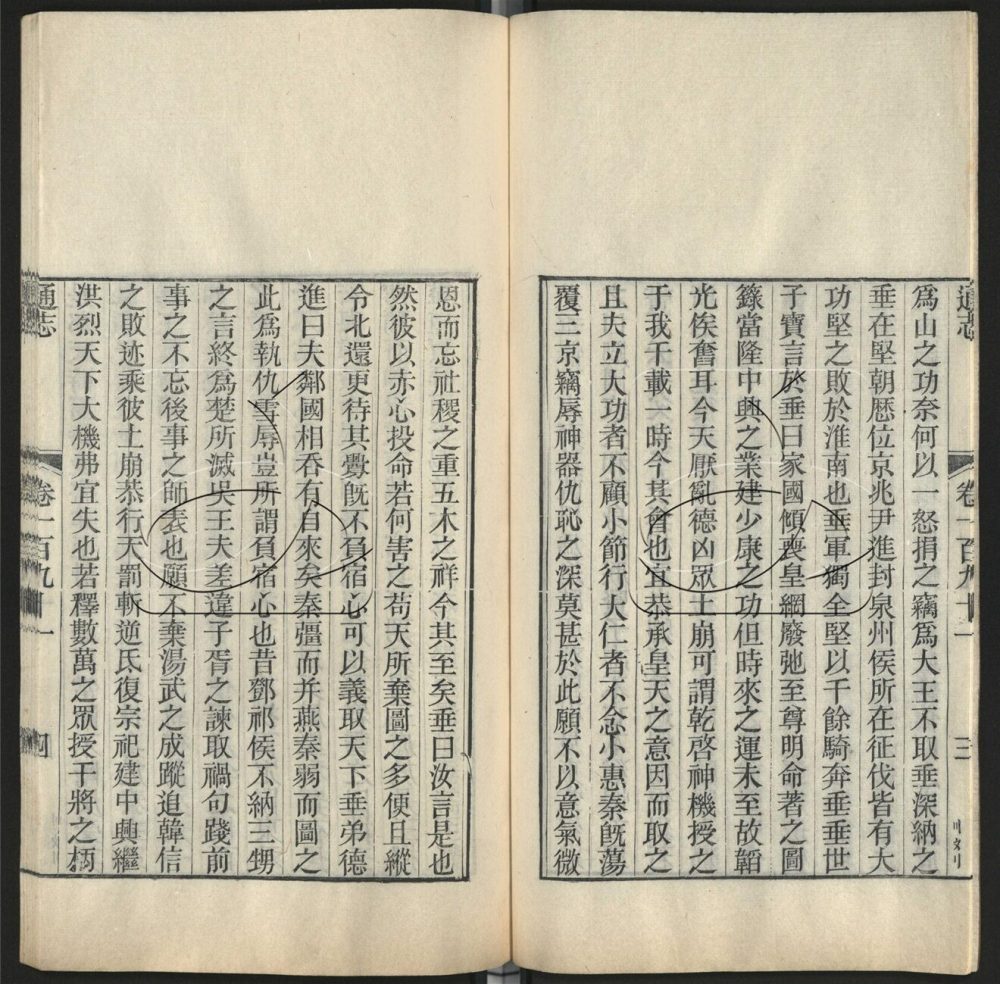 通志
卷一百九十一
三
爲山之功奈何以一怒捐之竊爲大王不取垂深納之
垂在堅朝歴位京兆尹進封泉州侯所在征伐皆有大
功堅之敗於淮南也垂軍獨全堅以千餘騎奔垂垂世
子寶言於垂曰家國傾喪皇綱廢弛至尊明命著之圖
籙當隆中興之業建少康之功但時來之運未至故韜
光俟奮耳今天厭亂德凶眾土崩可謂乾啓神機授之
于我千載一時今其會也宜恭承皇天之意因而取之
且夫立大功者不顧小節行大仁者不念小惠秦旣蕩
覆三京竊辱神器仇恥之深莫甚於此願不以意氣微
恩而忘社稷之重五木之祥今其至矣垂曰汝言是也
然彼以赤心投命若何害之苟天所棄圖之多便且縱
令北還更待其釁旣不負宿心可以義取天下垂弟德
進曰夫鄰國相吞有自來矣秦彊而并燕秦弱而圖之
此爲執仇雪辱豈所謂負宿心也昔鄧祁侯不納三甥
之言終爲楚所滅吳王夫差違子胥之諫取禍句踐前
事之不忘後事之師表也願不棄湯武之成蹤追韓信
之敗迹乘彼土崩恭行天罰斬逆氐復宗祀建中興繼
洪烈天下大機弗宜失也若釋數萬之眾授干將之柄
通志
卷一百九十一
四